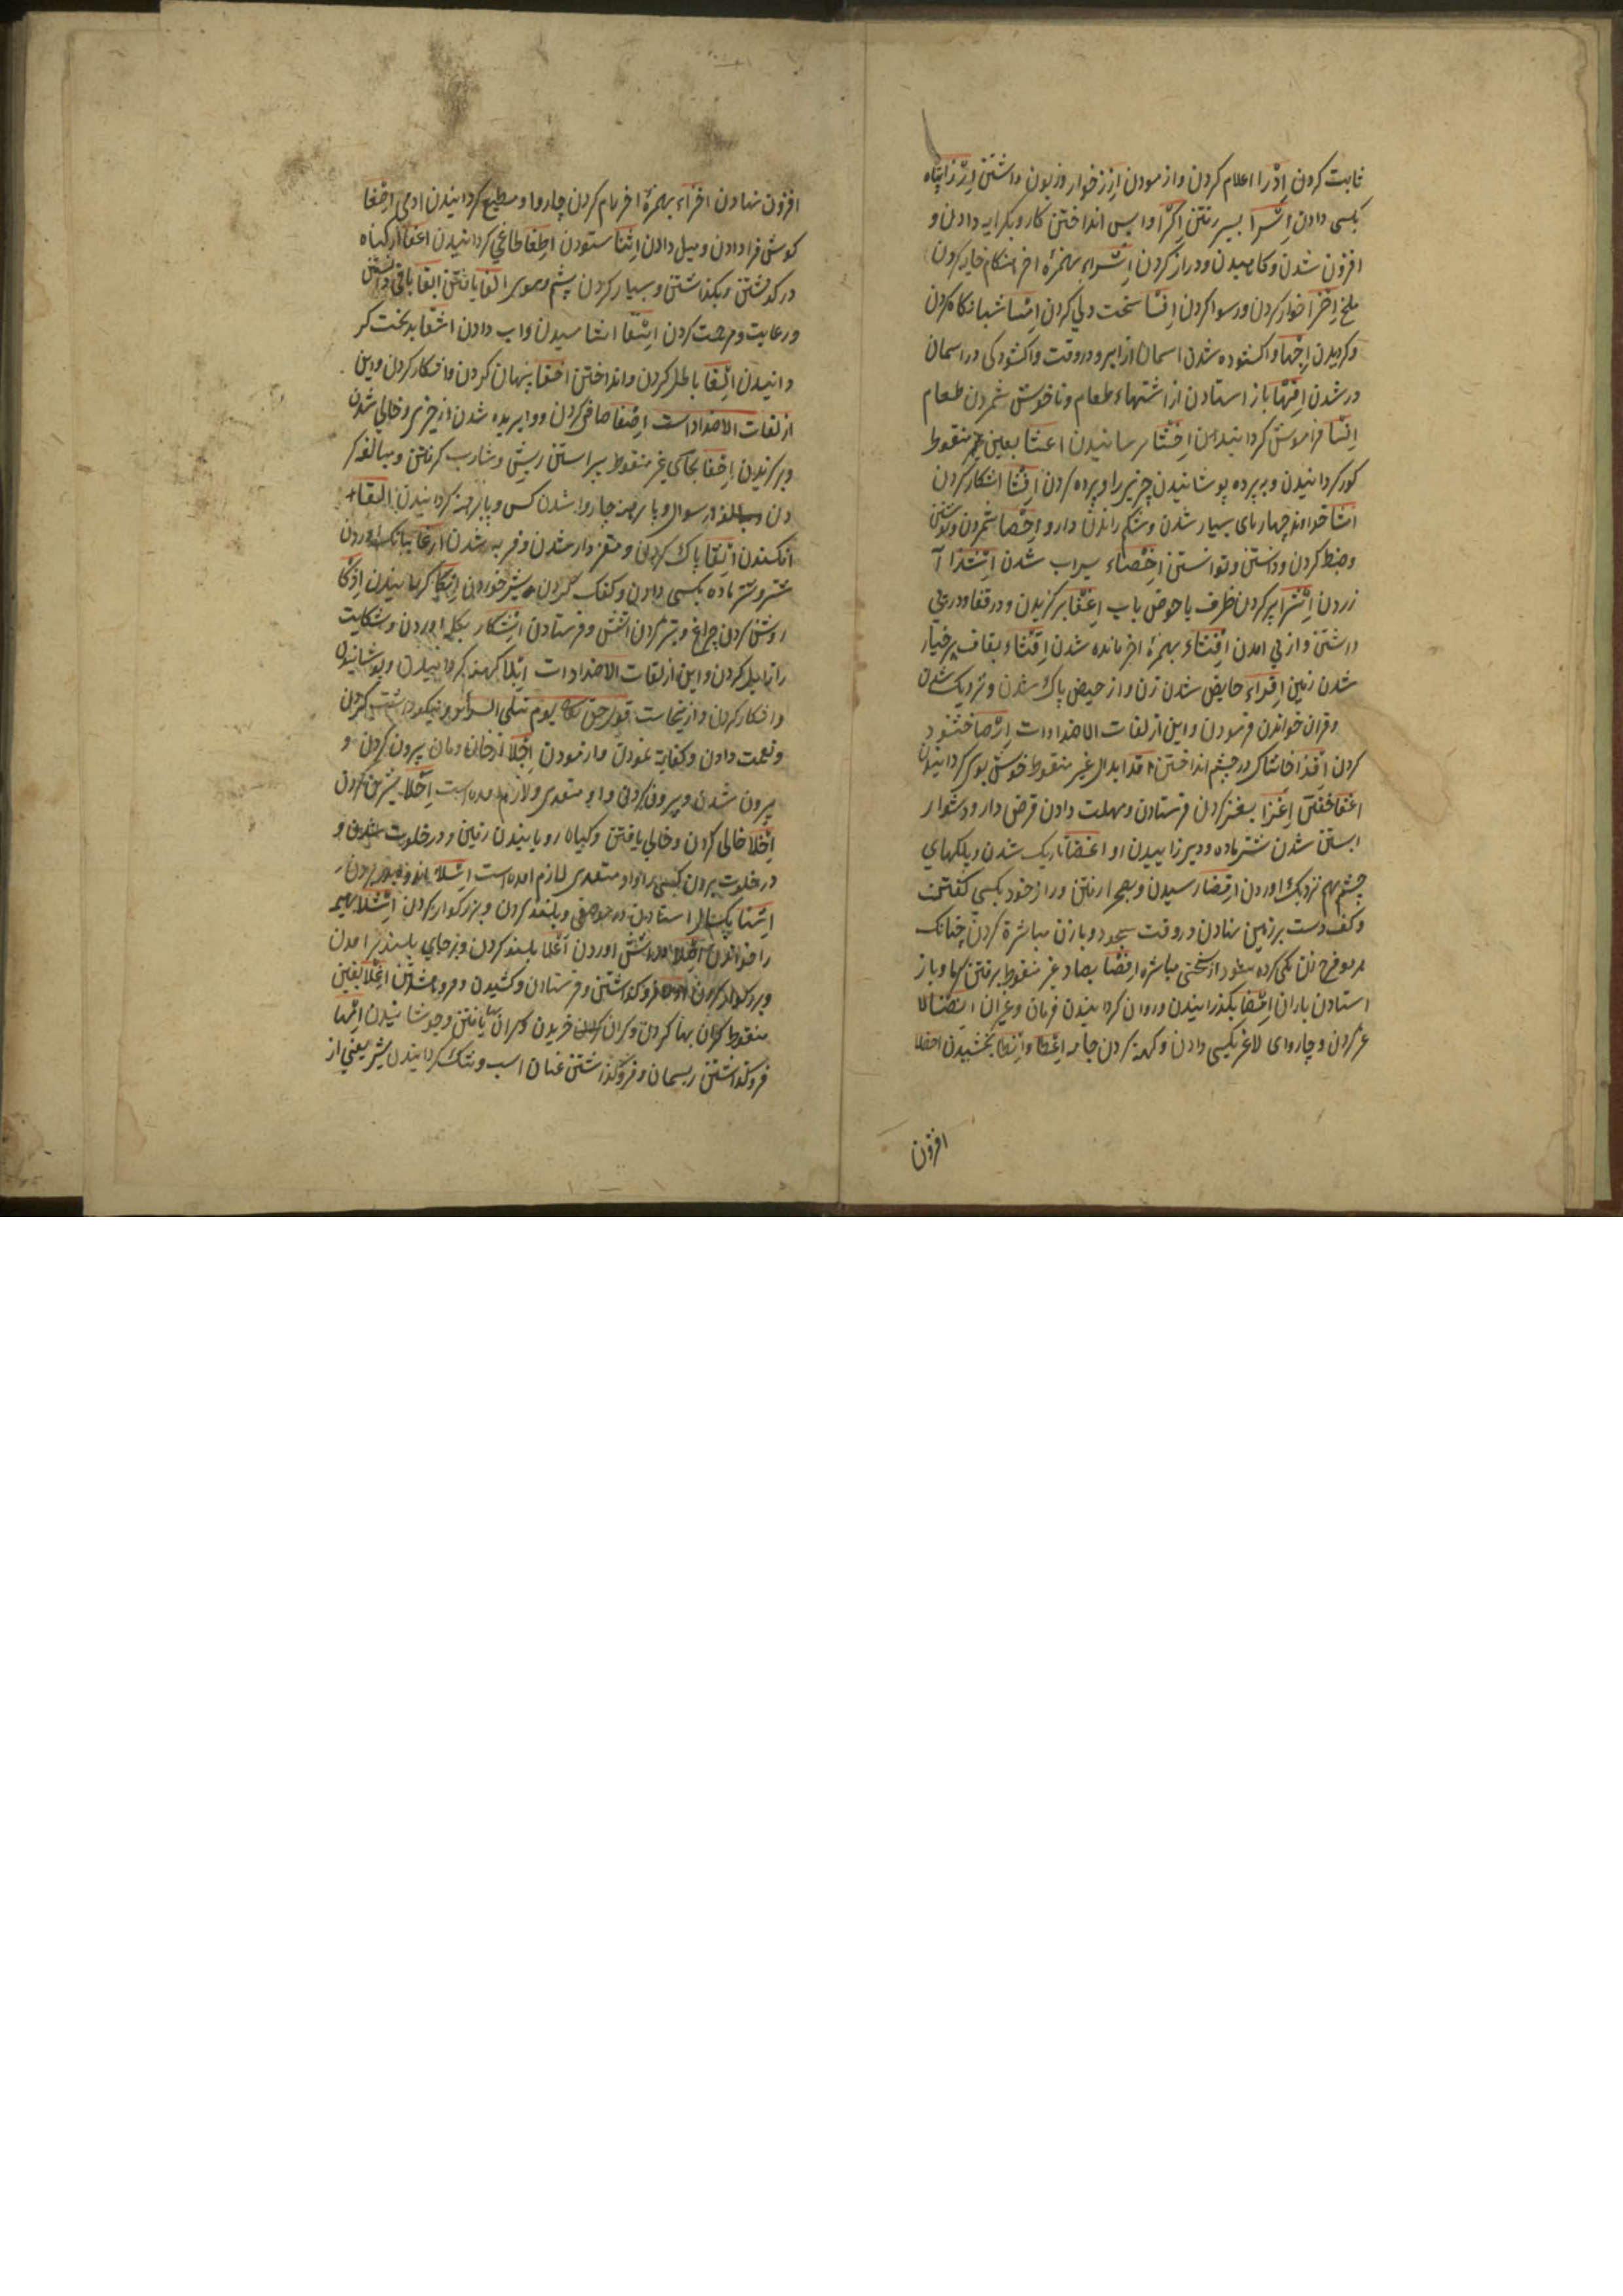 ثابت کردن ادرا اعلام کردن واز مودن ازرا خوار وزبون داشتن
بکسی دادن اسرا بسیر رفتن اکرا واپس انداختن کار وبکرایه دادن و
افزون شدن وکاهیدن ودراز کردن اشراء بهمزهٔ اخر هنکام خایه کردن
ملخ اخزا خوار کردن ورسوا کردن اقسا سخت دلی کردن امسا شبانکاه کردن
وکردیدن اجها واکشوده شدن اسمان از ابر ودر وقت واکشودکی در اسمان
در شدن اقها باز استادن از اشتهاء طعام وناخوش شمردن طعام
انسا فراموش کردانیدن رسانیدن اعشا بعین غیر منقوط
کور کردانیدن وپرده پوشانیدن چیزیرا وپرده کردن افشا اشکار کردن
امشا خداوند چهارپای بسیار شدن وشکم راندن دارو احصا شمردن
وضبط کردن ودانستن وتوانستن سیراب شدن
زردن اترا پر کردن ظرف یا حوض باب برکزیدن ودر قفا
داشتن واز پی امدن افثاء بهمزهٔ اخر مانده شدن اقثاء بقاف پر خیار
شدن زمین اقراء حایض شدن زن واز حیض پاک شدن ونزدیک شدن
وقران خواندن فرمودن واین از لغات الاضداد است ارضا خشنود
کردن اقذا خاشاک در چشم انداختن اقدا بدال غیر منقوط خوش بوی کردانیدن
اغفا خفتن اغزا بغز کردن فرستادن ومهلت دادن قرض دار ودشوار
ابستن شدن شتر ماده ودیر زاییدن او اغضا تاریک شدن وپلکهای
چشم بهم نزدیک اوردن افضا رسیدن وبصحرا رفتن وراز خود بکسی کفتن
وکف دست بر زمین نهادن در وقت سجود وبا زن مباشرة کردن چنانکه
هر دو فرج زن یکی کرده شود از سختی مباشره افصا بصاد غیر منقوط برفتن سرما وباز
استادن باران امضا بکذرانیدن وروان کردانیدن فرمان وغیر ان انضا لا
غر کردن وچاروای لاغر بکسی دادن وکهنه کردن جامه اعطا وانطا بخشیدن
افزون
افزون نهادن اقراء بهمزهٔ اخر رام کردن چاروا ومطیع کردانیدن ادمی اصغا
کوش فرا دادن ومیل دادن اثنا ستودن اطغا طاغی کردانیدن اعفا از کناه
در کذشتن وبکذاشتن وبسیار کردن پشم وموی الفا یافتن ابقا باقی داشتن
ورعایت ومرحمت کردن اسقا اشامیدن واب دادن اشقا بدبخت کر
دانیدن الغا باطل کردن وانداختن اخفا پنهان کردن واشکار کردن واین
از لغات الاضداد است اصفا صافی کردن ووابریده شدن از چیزی وخالی شدن
وبرکزیدن احفا بحای غیر منقوط پیراستن ریش وشارب کرفتن ومبالغه کر
دن در سوال وپا برهنه چاروا شدن کس وپا برهنه کردانیدن القا
افکندن انقا پاک کردن ومغز دار شدن وفربه شدن ارغا ببانک اوردن
شتر وشتر ماده بکسی دادن وکفک کردن شیر خوردنی ابکا کریانیدن اذکا
روشن کردن چراغ وتیز کردن اتش وفرستادن اشکا بکله اوردن وشکایت
زایل کردن واین از لغات الاضداد است ابلا کهنه کردانیدن وپوشانیدن
واشکار کردن وازینجاست قول حق یوم تبلی السرائر ونیکو داشت کردن
ونعمت دادن وکفایه نمودن وازمودن اجلا از خان ومان بیرون کردن و
بیرون شدن وبیرون کردن واو متعدی ولازم امده است احلا شیرین کردن
اخلا خالی کردن وخالی یافتن وکیاه رویانیدن زمین ودر خلوت شدن و
در خلوت بردن کسی را واو متعدی لازم امده است
استادن در موضعی وبلند کردن وبزرکوار کردن اشلا بهیمه
را خواندن اوردن اعلا بلند کردن وبرجای بلند بر امدن
وبزرکوار کردن فروکذاشتن وفرستادن وکشیدن اغلا بغین
منقوط کران بها کردن وکران خریدن وکران بها یافتن وجوشانیدن امها
فروکذاشتن ریسمان وفروکذاشتن عنان اسب وتنک کردانیدن شیر یعنی از